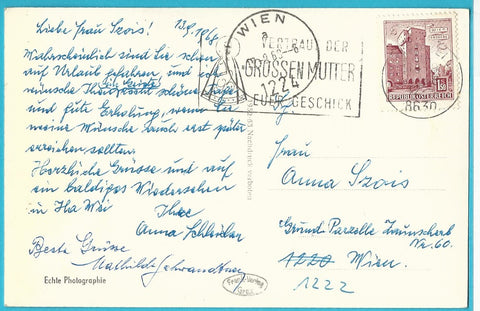 Liebe Frau Szois! 13.9.1968
Wahrscheinlich sind Sie schon
auf Urlaub gefahren und ich
wünsche Ihnen schöne Tage
Gute
und gute Erholung, wenn
meine Wünsche auch erst später
erreichen sollten.
Herzliche Grüsse und auf
ein baldiges Wiedersehen
in
Ihre
Anna
Beste Grüsse
Mathilde
Echte Photographie
WIEN
VERTRAUT DER
GROSSEN MUTTER
EUER GESCHICK
REPUBLIK ÖSTERREICH
1.50
8630
Frau
Anna Szois
Grund Parzelle
Nr. 60.
1220 Wien.
1222